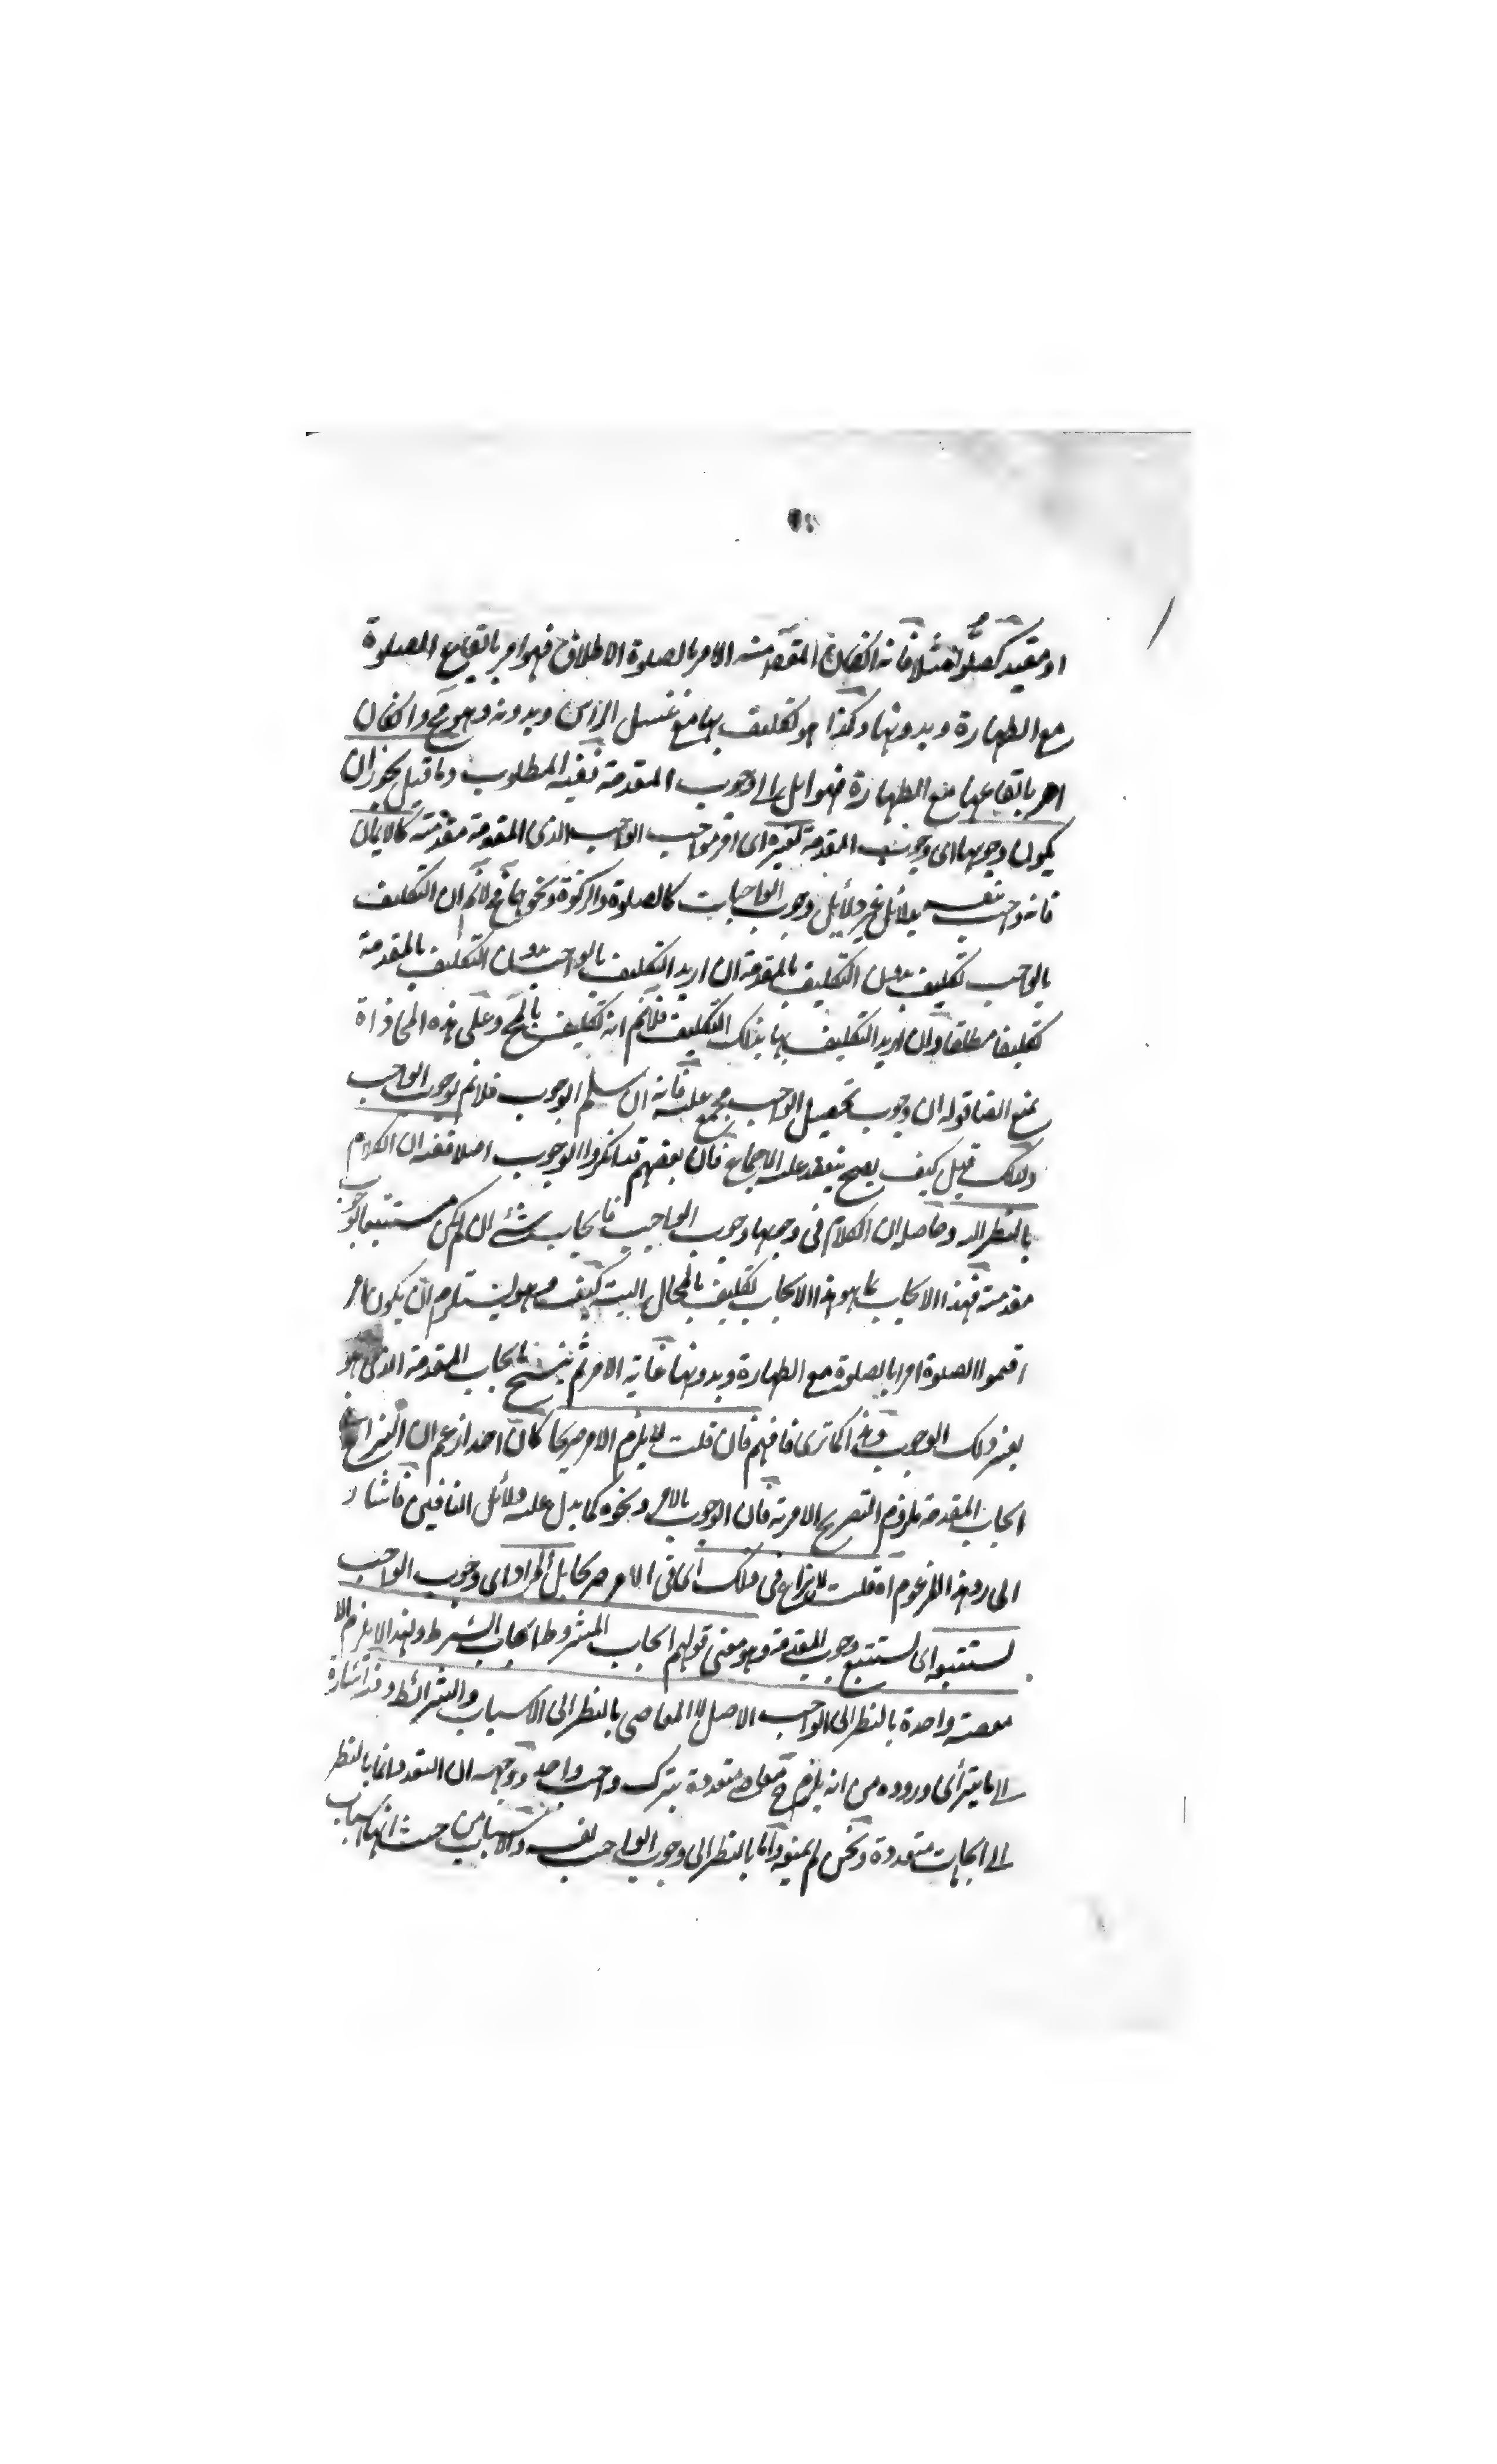 او مقيد كصلوة مثلا فانه انكان المقصد منه الامر بالصلوة الاطلاق فهو امر بايقاع الصلوة
مع الطهارة وبدونها وكذا هو تكليف بها مع غسل الراس وبدونه وهو مح وانكان
امر بايقاعها مع الطهارة فهو ايل الى وجوب المقدمة نفيه المطلوب وما قيل يجوز ان
يكون وجوبها اى وجوب المقدمة لغيره اى الواجب الذى المقدمة مقدمته كالايمان
فانه واجب بنفسه بدلائل غير دلائل وجوب الواجبات كالصلوة والزكوة ونحوهما فلانم ان التكليف
بالواجب تكليف بدون التكليف بالمقدمة ان اريد التكليف بالواجب بدون التكليف بالمقدمة
تكليفا مطلقا وان اريد التكليف بها بذلك التكليف فلانم انه تكليف بالمح وعلى هذه المحاذاة
يمنع ايضا قوله ان وجوب تحصيل الواجب مجمع عليه فانه ان سلم الوجوب فلانم لوجوب الواجب
ذلك قيل كيف يصح ينعقد عليه الاجماع فان بعضهم قد انكروا الوجوب اصلا ففيه ان الكلام
بالنظر اليه وحاصله ان الكلام فى وجوبها وجوب الواجب فايجاب شئ ان لم يكن مستتبعا لوجوب
مقدمته فهذا الايجاب بما هو هذا الايجاب تكليف بالمحال البتة كيف وهو يستلزم ان يكون امر
اقيموا الصلوة امرا بالصلوة مع الطهارة وبدونها غاية الامر ثم ينسخ بايجاب المقدمة الذى هو
بغير ذلك الوجوب وهذا كما ترى فافهم فان قلت لا يلزم الامر صريحا كان احدا زعم ان النزاع فى
ايجاب المقدمة بلزوم التصريح الامر به فان الوجوب بالامر ونحوه كما يدل عليه دلائل النافين فاشار
الى رد هذا المزعوم اه قلت لا نزاع فى ذلك اى فى الامر صريحا بل المراد اى وجوب الواجب
يستتبعه اى يستتبع وجوب المقدمة وهو معنى قولهم ايجاب المشروط ايجاب الشرط ولهذا لا يلزم الا
معصية واحدة بالنظر الى الواجب الاصل لا المعاصى بالنظر الى الاسباب والشرائط وهذا اشارة
الى ما يترأى وروده من انه يلزم ح معاص متعددة بترك واجب واحد ووجهه ان التعدد انما بالنظر
الى ايجابات متعددة ونحن لم بالنظر الى وجوب الواجب نفسه والاسباب من حيث انها اسباب